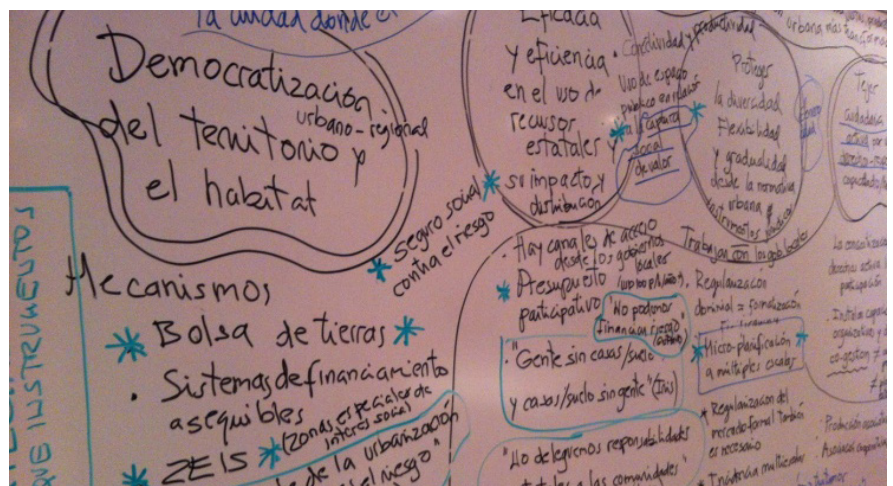 la ciudad donde el
Democratización
del territorio y
urbano-regional
el habitat
QUE INSTRUMENTOS
Mecanismos
* Bolsa de tierras *
· Sistemas de financiamiento
asequibles
* ZEIS * (zonas especiales de
interés social)
de la urbanización
el riesgo"
* Seguro social
contra el riesgo
Eficacia
y eficiencia
en el uso de
recursos
estatales y
* su impacto y
distribución
· Conectividad y productividad
Uso de espacio
público en relación
* a la captura *
social
de valor
Proteger
la diversidad
Flexibilidad
y gradualidad
desde la normativa
urbana y
urbana más
Tejer
ciudadanía
activa por
· Hay canales de acceso
desde los gobiernos
locales
* Presupuesto
participativo
"No podemos
financiar riesgo"
· "Gente sin casas/suelo
y casas/suelo sin gente" (Isis)
"No deleguemos responsabilidades
estatales a las comunidades"
Trabajar con los gob locales
· Regularización
dominial = formalización
* Micro-planificación *
a múltiples escalas
* Regularización del
mercado formal también
es necesario
* Incidencia multiescalar
participación
co-gestión ≠
· Producción